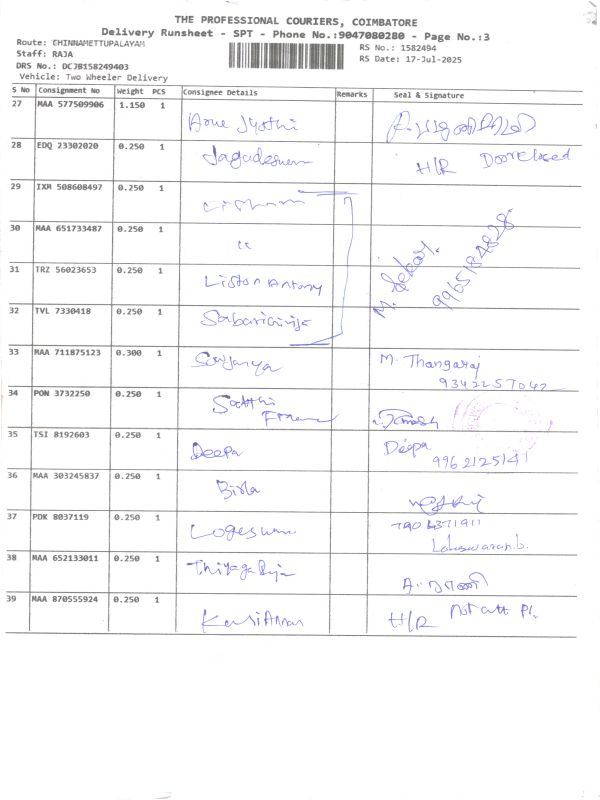 THE PROFESSIONAL COURIERS, COIMBATORE
Delivery Runsheet - SPT - Phone No.:9047080280 - Page No.:3
Route: CHINNAMETTUPALAYAM
Staff: RAJA
DRS No.: DCJB158249403
Vehicle: Two Wheeler Delivery
RS No.: 1582494
RS Date: 17-Jul-2025
S No Consignment No Weight PCS Consignee Details Remarks Seal & Signature
27 MAA 577509906 1.150 1 Jyothi
28 EDQ 23302020 0.250 1 H/R Door Closed
29 IXM 508608497 0.250 1
30 MAA 651733487 0.250 1 "
31 TRZ 56023653 0.250 1 Liston Antony
M. Sekar.
9965184828
32 TVL 7330418 0.250 1
33 MAA 711875123 0.300 1 M. Thangaraj
9342257042
34 PON 3732250 0.250 1 Sakthi
35 TSI 8192603 0.250 1 Deepa Deepa
9962125141
36 MAA 303245837 0.250 1 Birla
37 PDK 8037119 0.250 1 Logeswan
38 MAA 652133011 0.250 1
39 MAA 870555924 0.250 1 H/R Not att Pl.